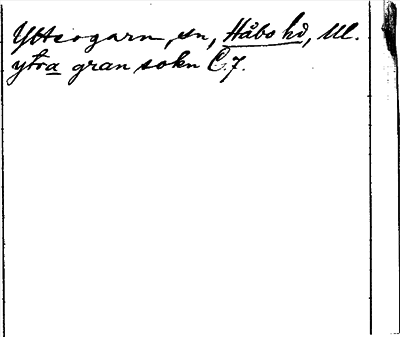 Yttergarn, sn, Håbo hd, Upl.
ytra gran sokn C7.